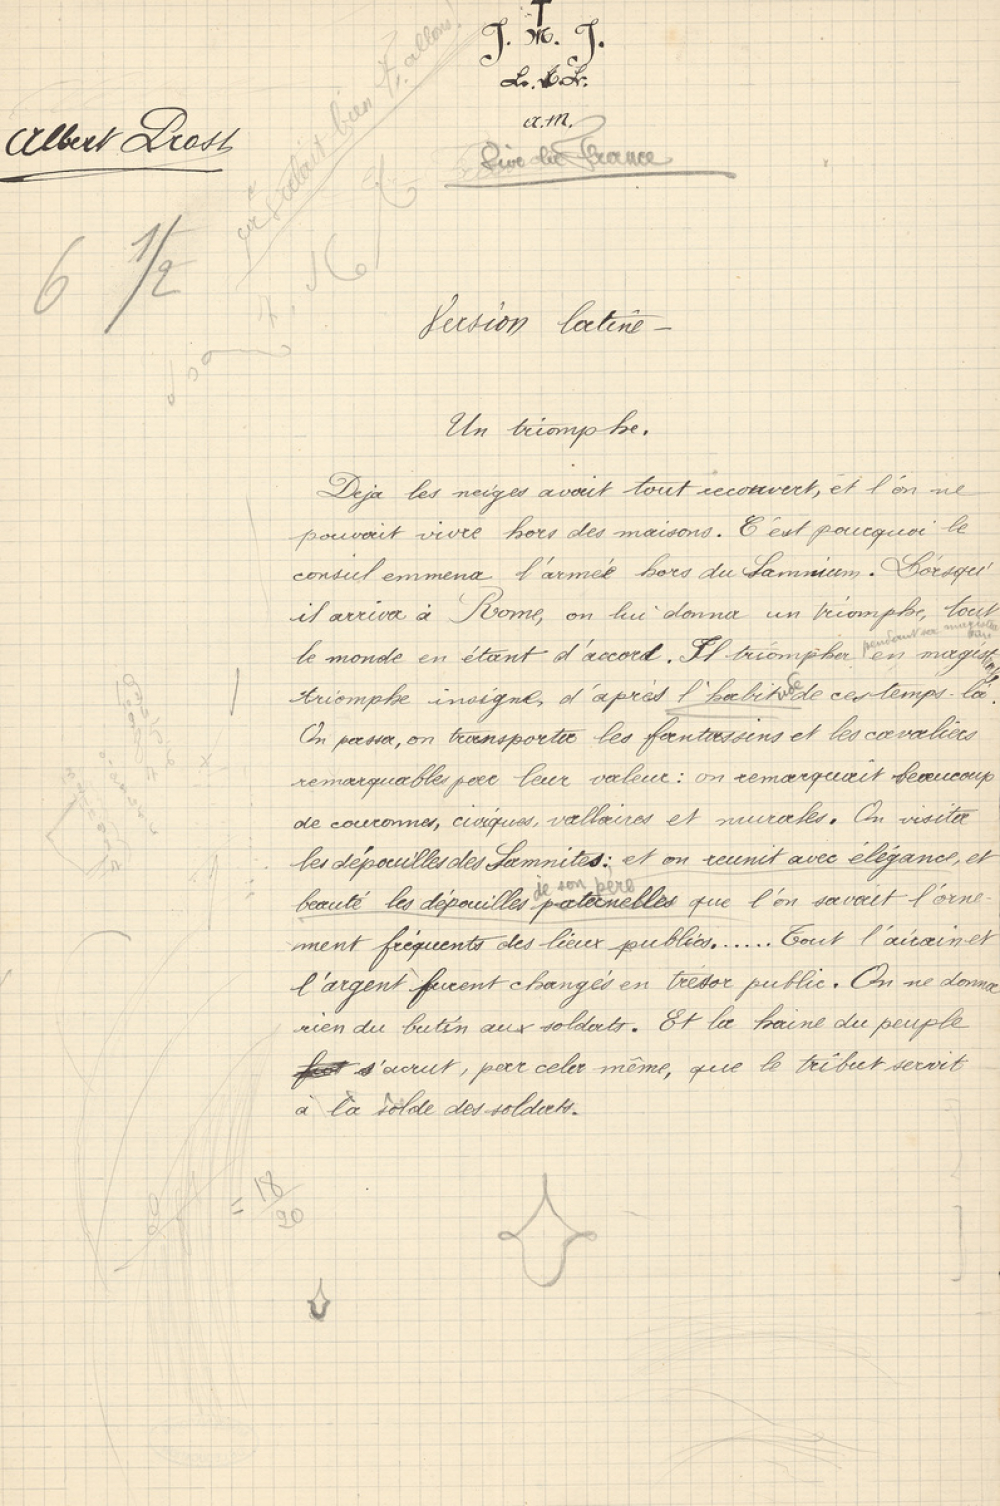 J. M. J.
a.m.
Albert Prost
Vive la France
6 1/2
Version latine -
Un triomphe.
Deja les neiges avait tout recouvert, et l'on ne
pouvait vivre hors des maisons. C'est pourquoi le
consul emmena l'armée hors du Samnium. Lorsqu'
il arriva à Rome, on lui donna un triomphe, tout
le monde en étant d'accord. Il triompha en magist
pendant sa
triomphe insigne, d'après l'habitude de ces temps-là.
On passa, on transporta les fantassins et les cavaliers
remarquables par leur valeur: on remarquait beaucoup
de couronnes, civiques, vallaires et murales. On visita
les dépouilles des Samnites: et on reunit avec élégance, et
de son père
beauté les dépouilles paternelles que l'on savait l'orne-
ment fréquents des lieux publics...... Tout l'airain et
l'argent furent changés en trésor public. On ne donna
rien du butin aux soldats. Et la haine du peuple
s'acrut, par cela même, que le tribut servit
à la solde des soldats.
= 18/20